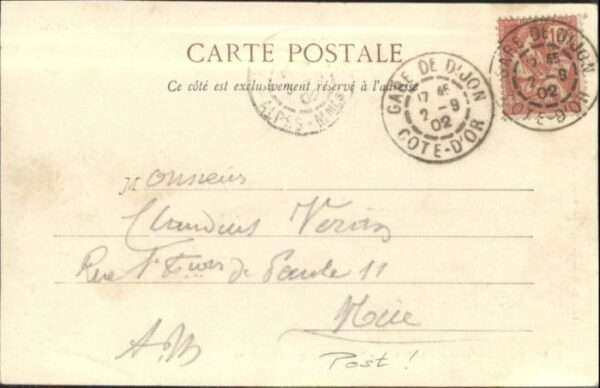 CARTE POSTALE
Ce côté est exclusivement réservé à l'adresse
ALPES-MMES
GARE DE DIJON
17 45
2 - 9
02
COTE-D'OR
GARE DE DIJON
17 45
2 - 9
02
COTE-D'OR
Monsieur
Claudius
Rue St de Paule 11
Nice
A.M
Post!